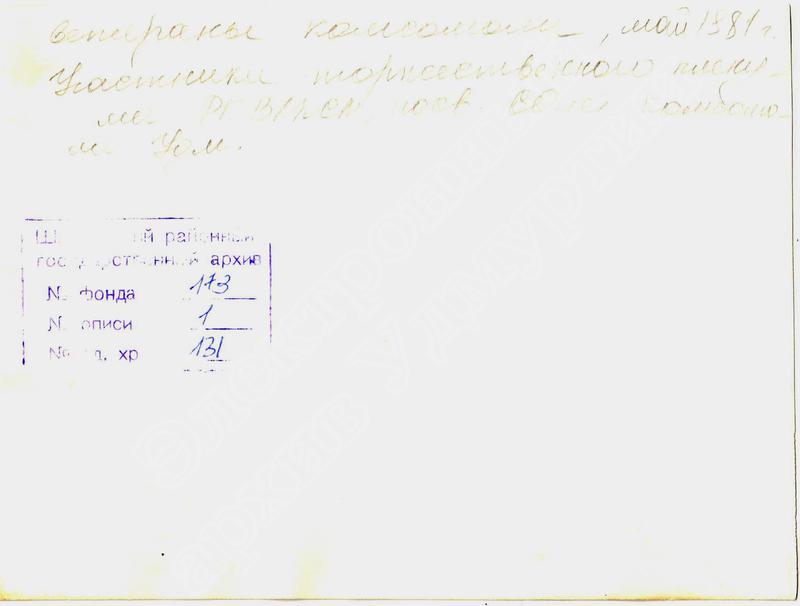 ветераны комсомола, май 1981 г.
Участники торжественного плену-
ма РК ВЛКСМ, посв.
Удм.
районный
государственный архив
№ фонда 173
№ описи 1
№ ед. хр 131
Электронный
архив Удмуртии